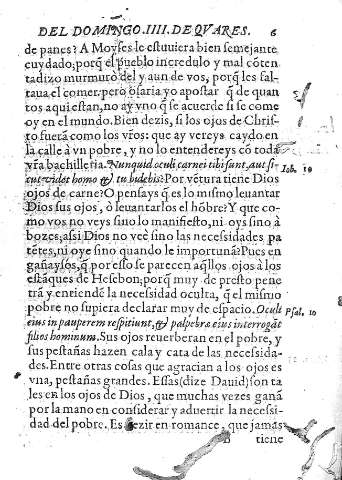 DEL DOMINGO. IIII. DE QVARES. 6
de panes? A Moyses le estuuiera bien semejante
cuydado; porq̃ el pueblo incredulo y mal cõten
tadizo murmurò del y aun de vos, porq̃ les fal-
taua el comer, pero osaria yo apostar q̃ de quan
tos aqui estan, no ay vno q̃ se acuerde si se come
oy en el mundo. Bien dezis, si los ojos de Chris-
to fuerã como los vr̃os: que ay vereys caydo en
la calle à vn pobre, y no lo entendereys cõ toda
vr̃a bachilleria. Nunquid oculi carnei tibi sunt, aut si-
cut videt homo & tu bidebis? Por vẽtura tiene Dios
Iob. 10
ojos de carne? O pensays q̃ es lo mismo leuantar
Dios sus ojos, ò leuantarlos el hõbre? Y que co-
mo vos no veys sino lo manifiesto, ni oys sino à
bozes, assi Dios no vee sino las necessidades pa
tẽtes, ni oye sino quando le importunã? Pues en
gañaysos, q̃ por esso se parecen aq̃llos ojos à los
estãques de Hesebon; porq̃ muy de presto pene
trã y entiendẽ la necessidad oculta, q̃ el mismo
pobre no supiera declarar muy de espacio. Oculi
Psal. 10
eius in pauperem respitiunt, & palpebræ eius interrogãt
filios hominum. Sus ojos reuerberan en el pobre, y
sus pestañas hazen cala y cata de las necessida-
des. Entre otras cosas que agracian a los ojos es
vna, pestañas grandes. Essas (dize Dauid) son ta
les en los ojos de Dios, que muchas vezes ganã
por la mano en considerar y aduertir la necessi-
dad del pobre. Es dezir en romance, que jamas
tiene